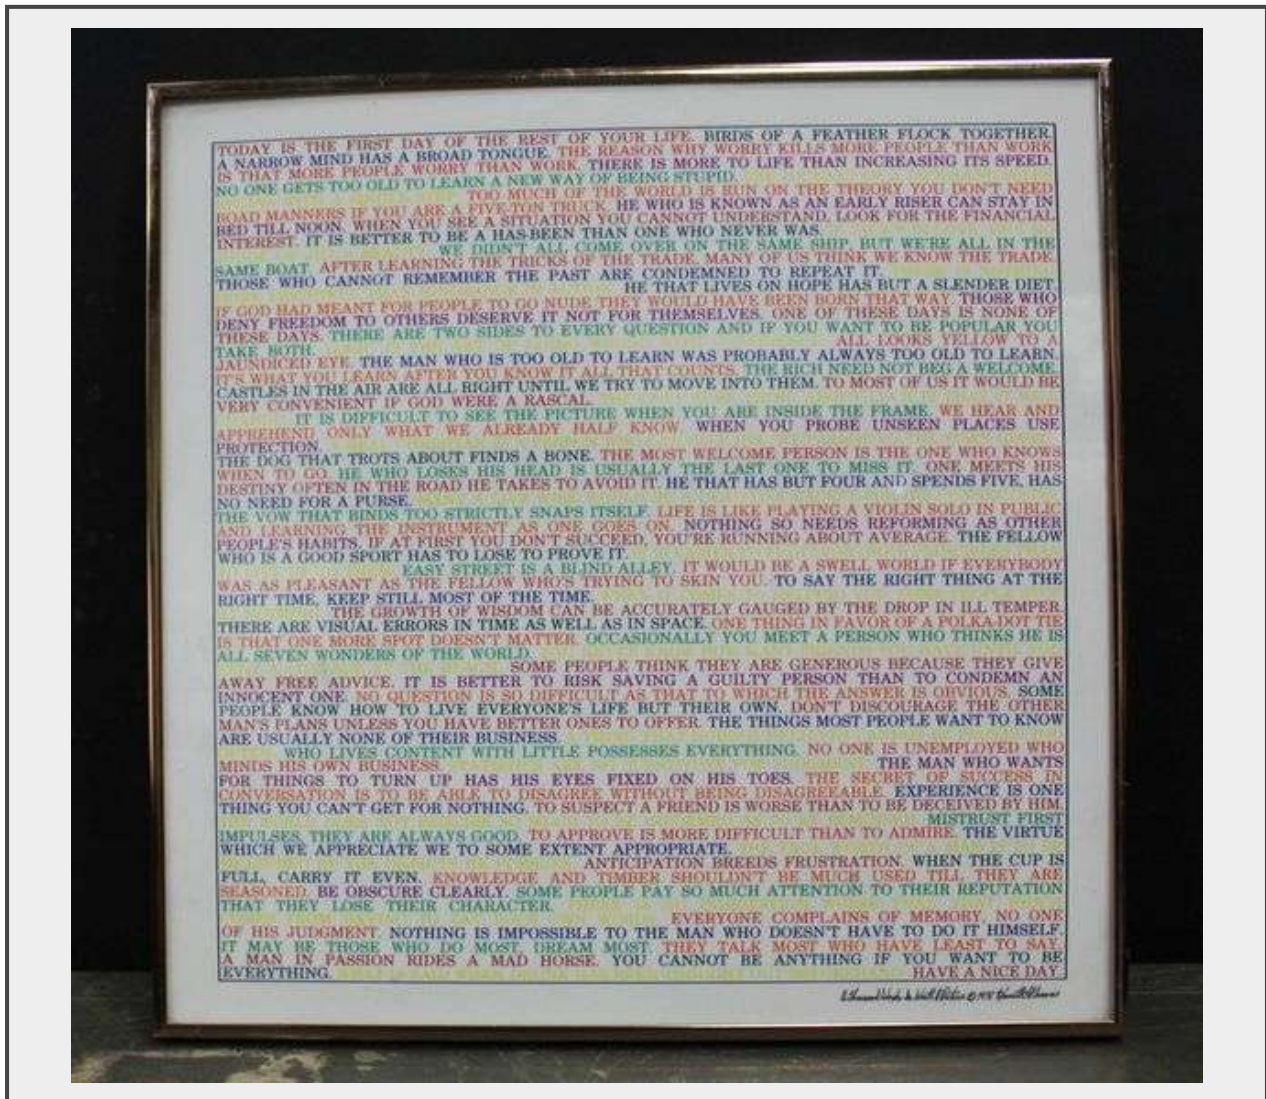 TODAY IS THE FIRST DAY OF THE REST OF YOUR LIFE. BIRDS OF A FEATHER FLOCK TOGETHER.
A NARROW MIND HAS A BROAD TONGUE. THE REASON WHY WORRY KILLS MORE PEOPLE THAN WORK
IS THAT MORE PEOPLE WORRY THAN WORK. THERE IS MORE TO LIFE THAN INCREASING ITS SPEED.
NO ONE GETS TOO OLD TO LEARN A NEW WAY OF BEING STUPID.
TOO MUCH OF THE WORLD IS RUN ON THE THEORY YOU DON'T NEED
ROAD MANNERS IF YOU ARE A FIVE-TON TRUCK. HE WHO IS KNOWN AS AN EARLY RISER CAN STAY IN
BED TILL NOON. WHEN YOU SEE A SITUATION YOU CANNOT UNDERSTAND, LOOK FOR THE FINANCIAL
INTEREST. IT IS BETTER TO BE A HAS-BEEN THAN ONE WHO NEVER WAS.
WE DIDN'T ALL COME OVER ON THE SAME SHIP, BUT WE'RE ALL IN THE
SAME BOAT. AFTER LEARNING THE TRICKS OF THE TRADE, MANY OF US THINK WE KNOW THE TRADE.
THOSE WHO CANNOT REMEMBER THE PAST ARE CONDEMNED TO REPEAT IT.
HE THAT LIVES ON HOPE HAS BUT A SLENDER DIET.
IF GOD HAD MEANT FOR PEOPLE TO GO NUDE THEY WOULD HAVE BEEN BORN THAT WAY. THOSE WHO
DENY FREEDOM TO OTHERS DESERVE IT NOT FOR THEMSELVES. ONE OF THESE DAYS IS NONE OF
THESE DAYS. THERE ARE TWO SIDES TO EVERY QUESTION AND IF YOU WANT TO BE POPULAR YOU
TAKE BOTH. ALL LOOKS YELLOW TO A
JAUNDICED EYE. THE MAN WHO IS TOO OLD TO LEARN WAS PROBABLY ALWAYS TOO OLD TO LEARN.
IT'S WHAT YOU LEARN AFTER YOU KNOW IT ALL THAT COUNTS. THE RICH NEED NOT BEG A WELCOME.
CASTLES IN THE AIR ARE ALL RIGHT UNTIL WE TRY TO MOVE INTO THEM. TO MOST OF US IT WOULD BE
VERY CONVENIENT IF GOD WERE A RASCAL.
IT IS DIFFICULT TO SEE THE PICTURE WHEN YOU ARE INSIDE THE FRAME. WE HEAR AND
APPREHEND ONLY WHAT WE ALREADY HALF KNOW. WHEN YOU PROBE UNSEEN PLACES USE
PROTECTION.
THE DOG THAT TROTS ABOUT FINDS A BONE. THE MOST WELCOME PERSON IS THE ONE WHO KNOWS
WHEN TO GO. HE WHO LOSES HIS HEAD IS USUALLY THE LAST ONE TO MISS IT. ONE MEETS HIS
DESTINY OFTEN IN THE ROAD HE TAKES TO AVOID IT. HE THAT HAS BUT FOUR AND SPENDS FIVE, HAS
NO NEED FOR A PURSE.
THE VOW THAT BINDS TOO STRICTLY SNAPS ITSELF. LIFE IS LIKE PLAYING A VIOLIN SOLO IN PUBLIC
AND LEARNING THE INSTRUMENT AS ONE GOES ON. NOTHING SO NEEDS REFORMING AS OTHER
PEOPLE'S HABITS. IF AT FIRST YOU DON'T SUCCEED, YOU'RE RUNNING ABOUT AVERAGE. THE FELLOW
WHO IS A GOOD SPORT HAS TO LOSE TO PROVE IT.
EASY STREET IS A BLIND ALLEY. IT WOULD BE A SWELL WORLD IF EVERYBODY
WAS AS PLEASANT AS THE FELLOW WHO'S TRYING TO SKIN YOU. TO SAY THE RIGHT THING AT THE
RIGHT TIME, KEEP STILL MOST OF THE TIME.
THE GROWTH OF WISDOM CAN BE ACCURATELY GAUGED BY THE DROP IN ILL TEMPER.
THERE ARE VISUAL ERRORS IN TIME AS WELL AS IN SPACE. ONE THING IN FAVOR OF A POLKA-DOT TIE
IS THAT ONE MORE SPOT DOESN'T MATTER. OCCASIONALLY YOU MEET A PERSON WHO THINKS HE IS
ALL SEVEN WONDERS OF THE WORLD.
SOME PEOPLE THINK THEY ARE GENEROUS BECAUSE THEY GIVE
AWAY FREE ADVICE. IT IS BETTER TO RISK SAVING A GUILTY PERSON THAN TO CONDEMN AN
INNOCENT ONE. NO QUESTION IS SO DIFFICULT AS THAT TO WHICH THE ANSWER IS OBVIOUS. SOME
PEOPLE KNOW HOW TO LIVE EVERYONE'S LIFE BUT THEIR OWN. DON'T DISCOURAGE THE OTHER
MAN'S PLANS UNLESS YOU HAVE BETTER ONES TO OFFER. THE THINGS MOST PEOPLE WANT TO KNOW
ARE USUALLY NONE OF THEIR BUSINESS.
WHO LIVES CONTENT WITH LITTLE POSSESSES EVERYTHING. NO ONE IS UNEMPLOYED WHO
MINDS HIS OWN BUSINESS. THE MAN WHO WANTS
FOR THINGS TO TURN UP HAS HIS EYES FIXED ON HIS TOES. THE SECRET OF SUCCESS IN
CONVERSATION IS TO BE ABLE TO DISAGREE WITHOUT BEING DISAGREEABLE. EXPERIENCE IS ONE
THING YOU CAN'T GET FOR NOTHING. TO SUSPECT A FRIEND IS WORSE THAN TO BE DECEIVED BY HIM.
MISTRUST FIRST
IMPULSES, THEY ARE ALWAYS GOOD. TO APPROVE IS MORE DIFFICULT THAN TO ADMIRE. THE VIRTUE
WHICH WE APPRECIATE WE TO SOME EXTENT APPROPRIATE.
ANTICIPATION BREEDS FRUSTRATION. WHEN THE CUP IS
FULL, CARRY IT EVEN. KNOWLEDGE AND TIMBER SHOULDN'T BE MUCH USED TILL THEY ARE
SEASONED. BE OBSCURE CLEARLY. SOME PEOPLE PAY SO MUCH ATTENTION TO THEIR REPUTATION
THAT THEY LOSE THEIR CHARACTER.
EVERYONE COMPLAINS OF MEMORY, NO ONE
OF HIS JUDGMENT. NOTHING IS IMPOSSIBLE TO THE MAN WHO DOESN'T HAVE TO DO IT HIMSELF.
IT MAY BE THOSE WHO DO MOST, DREAM MOST. THEY TALK MOST WHO HAVE LEAST TO SAY.
A MAN IN PASSION RIDES A MAD HORSE. YOU CANNOT BE ANYTHING IF YOU WANT TO BE
EVERYTHING. HAVE A NICE DAY.